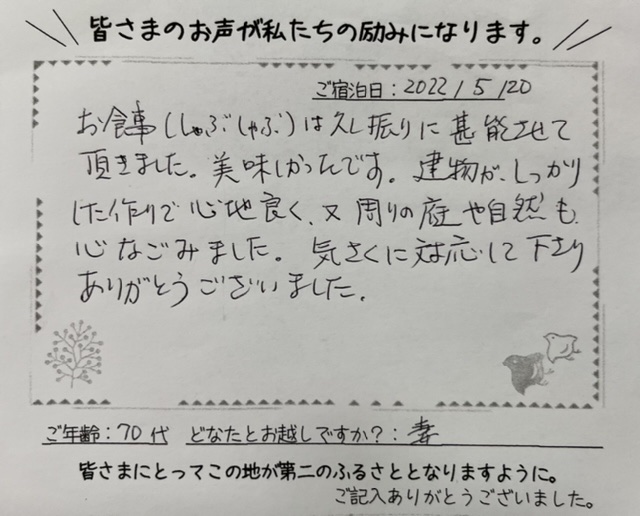 皆さまのお声が私たちの励みになります。
ご宿泊日：2022/5/20
お食事(しゃぶしゃぶ)は久し振りに甚能させて
頂きました。美味しかったです。建物が、しっかり
した作りで心地良く、又周りの庭や自然も
心なごみました。気さくに対応して下さり
ありがとうございました。
ご年齢：70代 どなたとお越しですか？：妻
皆さまにとってこの地が第二のふるさととなりますように。
ご記入ありがとうございました。